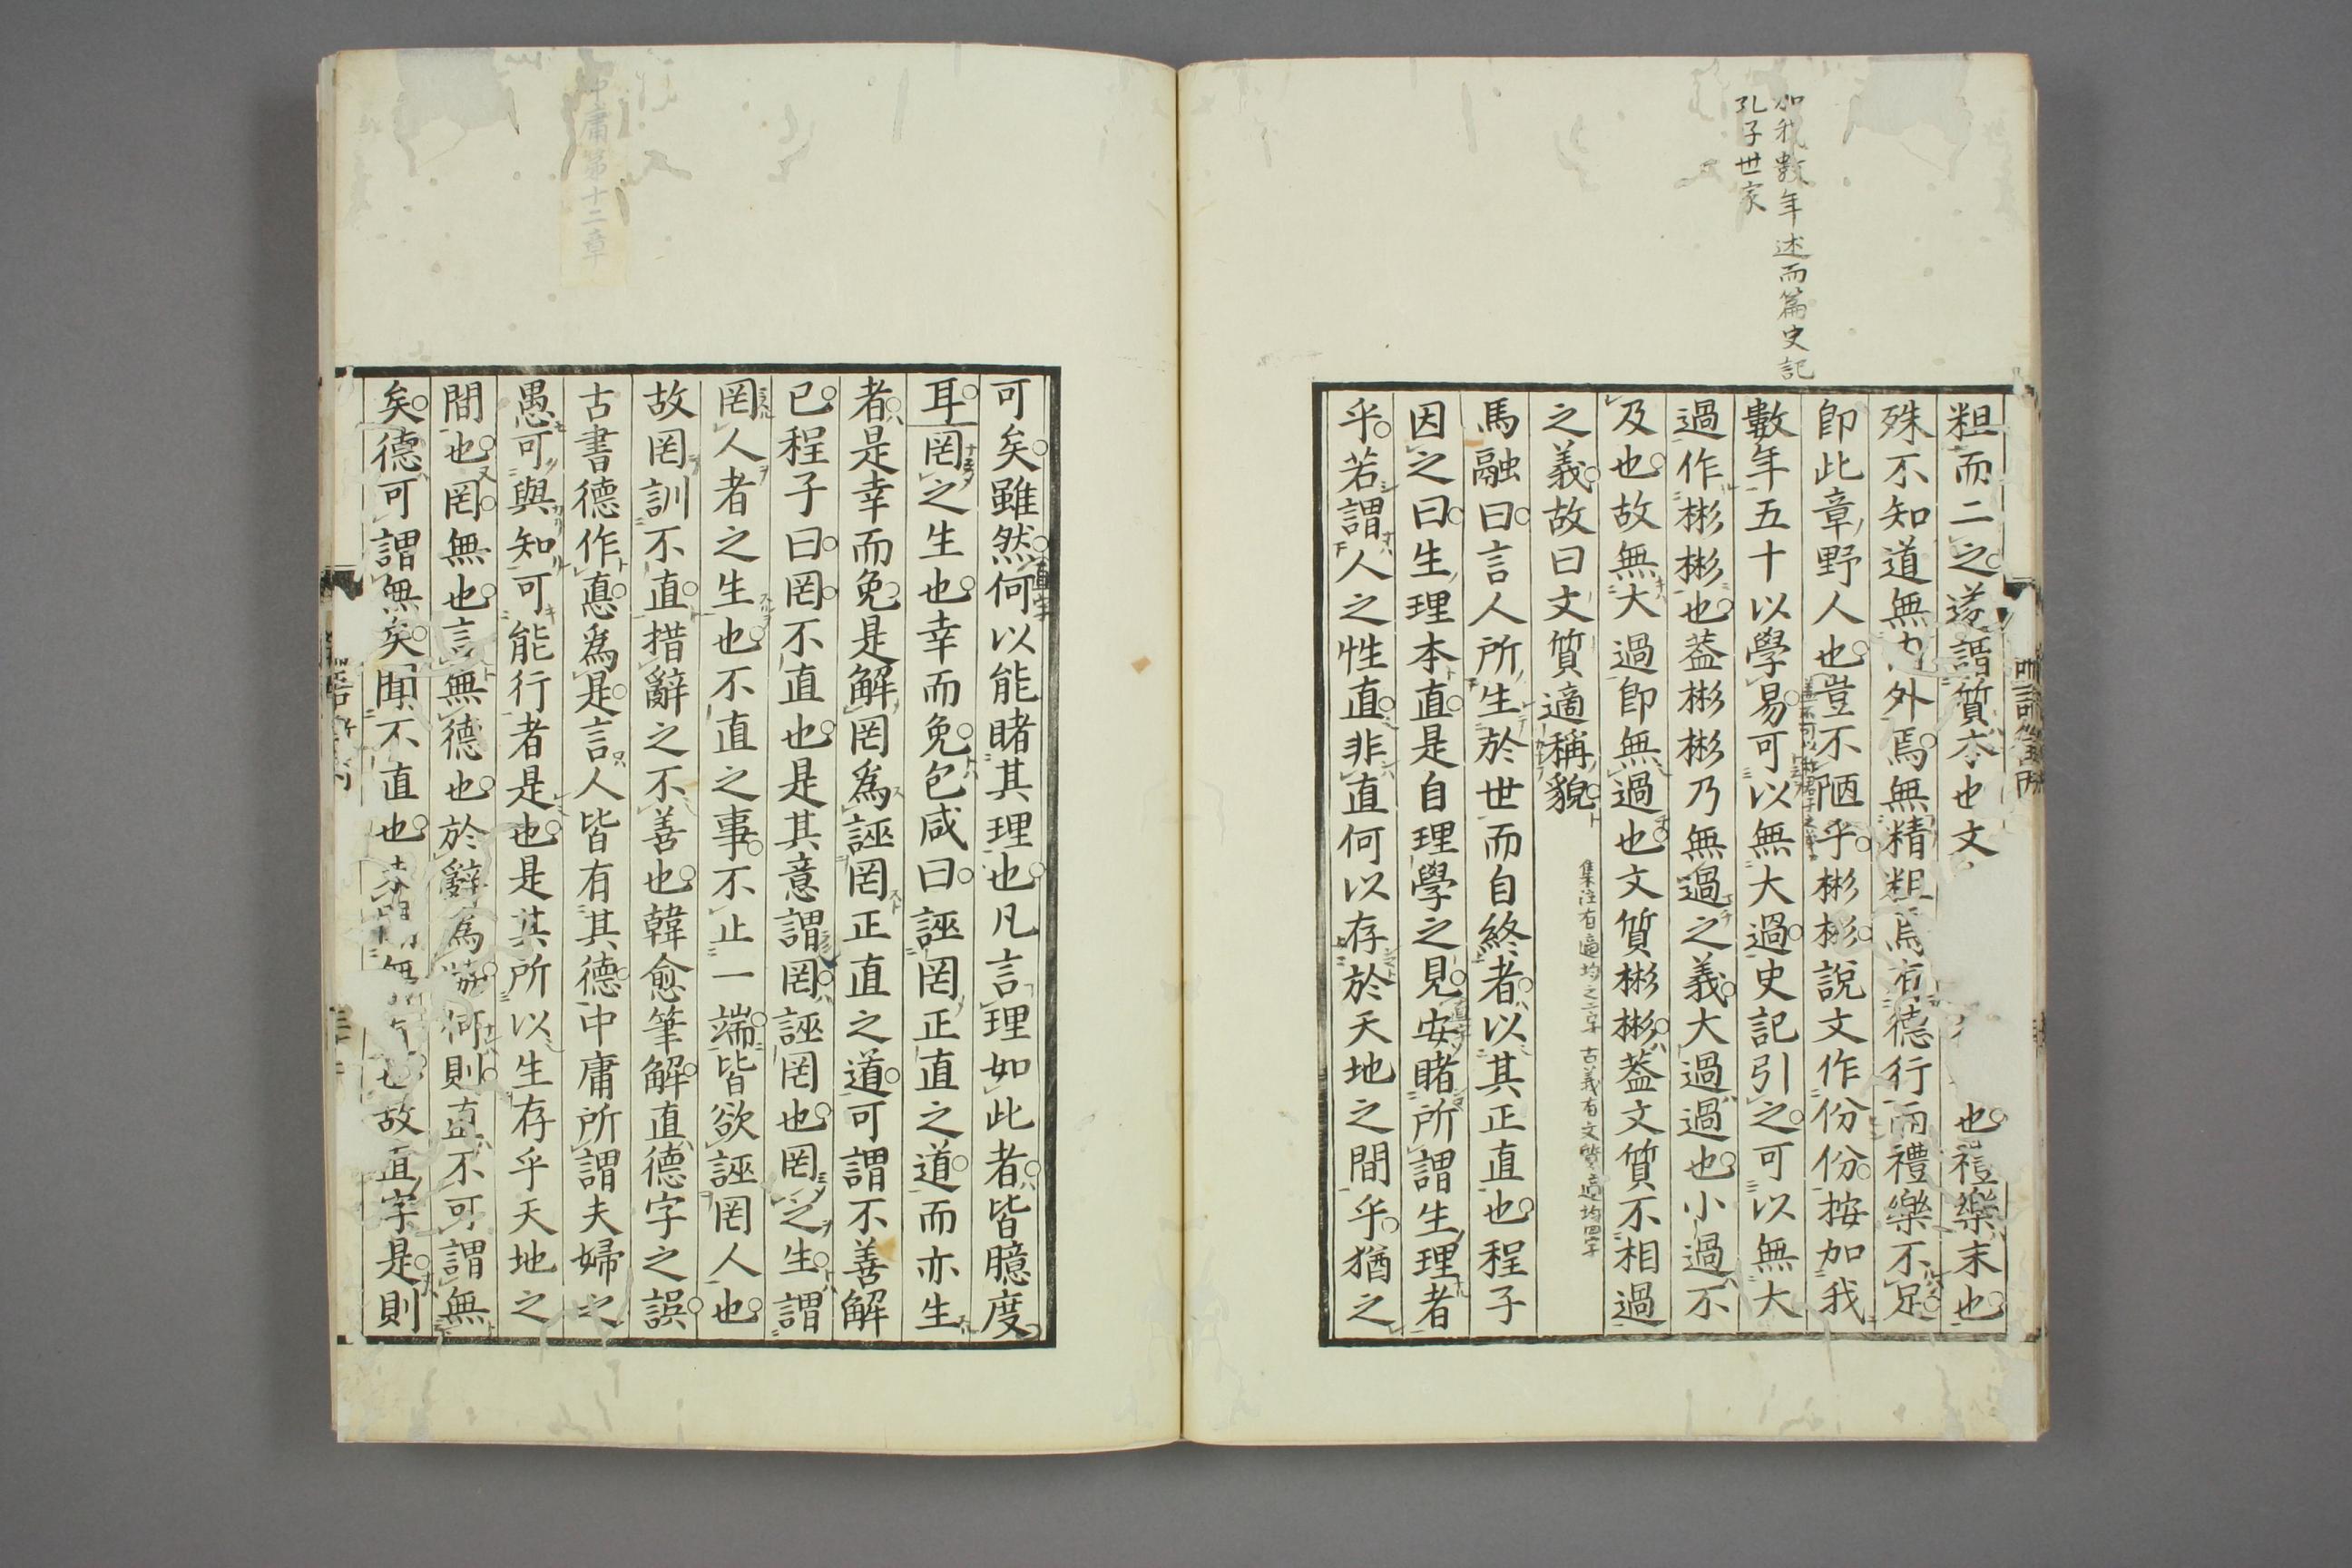 加我數年述而篇史記
孔子世家
粗而二之遂謂質本也文也禮樂末也
殊不知道無内外焉無精粗焉有德行而禮樂不足
卽此章野人也豈不陋乎彬彬說文作份份按加我
數年五十以學易可以無大過史記引之可以無大
過作彬彬也蓋彬彬乃無過之義大過過也小過不
及也故無大過卽無過也文質彬彬蓋文質不相過
之義故曰文質適稱貌
集注有適均之二字古義有文質適均四字
馬融曰言人所生於世而自終者以其正直也程子
因之曰生理本直是自理學之見安睹所謂生理者
乎若謂人之性直非直何以存於天地之間乎猶之
中庸第十二章
可矣雖然何以能睹其理也凡言理如此者皆臆度
直字
耳罔之生也幸而免包咸曰誣罔正直之道而亦生
者是幸而免是解罔爲誣罔正直之道可謂不善解
已程子曰罔不直也是其意謂罔誣罔也罔之生謂
罔人者之生也不直之事不止一端皆欲誣罔人也
故罔訓不直措辭之不善也韓愈筆解直德字之誤
古書德作悳爲是言人皆有其德中庸所謂夫婦之
愚可與知可能行者是也是其所以生存乎天地之
間也罔無也言無德也於辭爲勝何則直不可謂無
矣德可謂無矣且罔不直也故直字是則